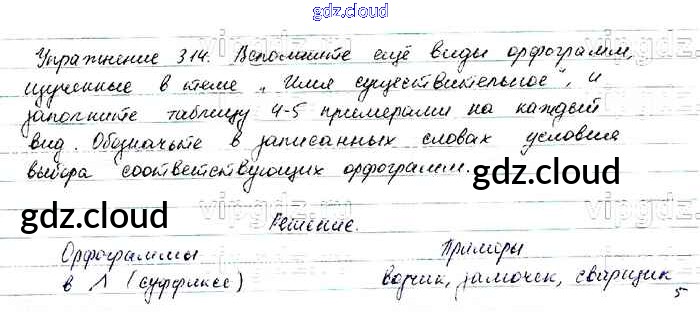 gdz.cloud
Упражнение 314. Вспомните ещё виды орфограмм,
изученные в теме „Имя существительное", и
заполните таблицу 4-5 примерами на каждый
вид. Обозначьте в записанных словах условия
выбора соответствующих орфограмм.
gdz.cloud
gdz.cloud
Решение.
Орфограммы Примеры
в Λ (суффиксе) водчик, замочек, сварщик
5